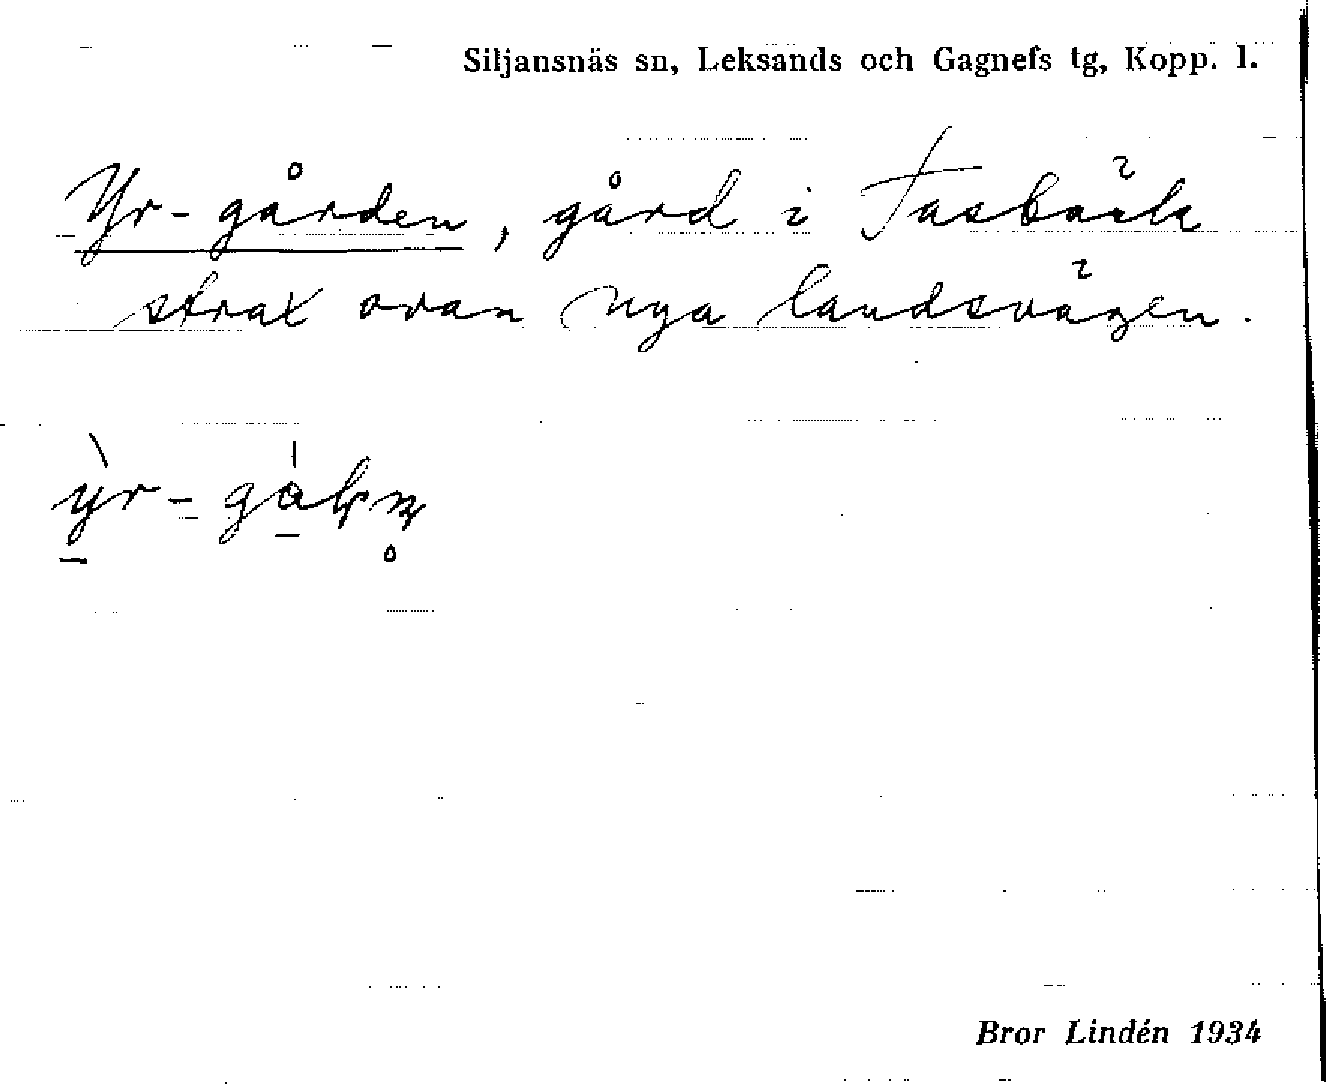 Siljansnäs sn, Leksands och Gagnefs tg, Kopp. l.
Yr-gården, gård i Tasbäck
strax ovan nya landsvägen.
Bror Lindén 1934